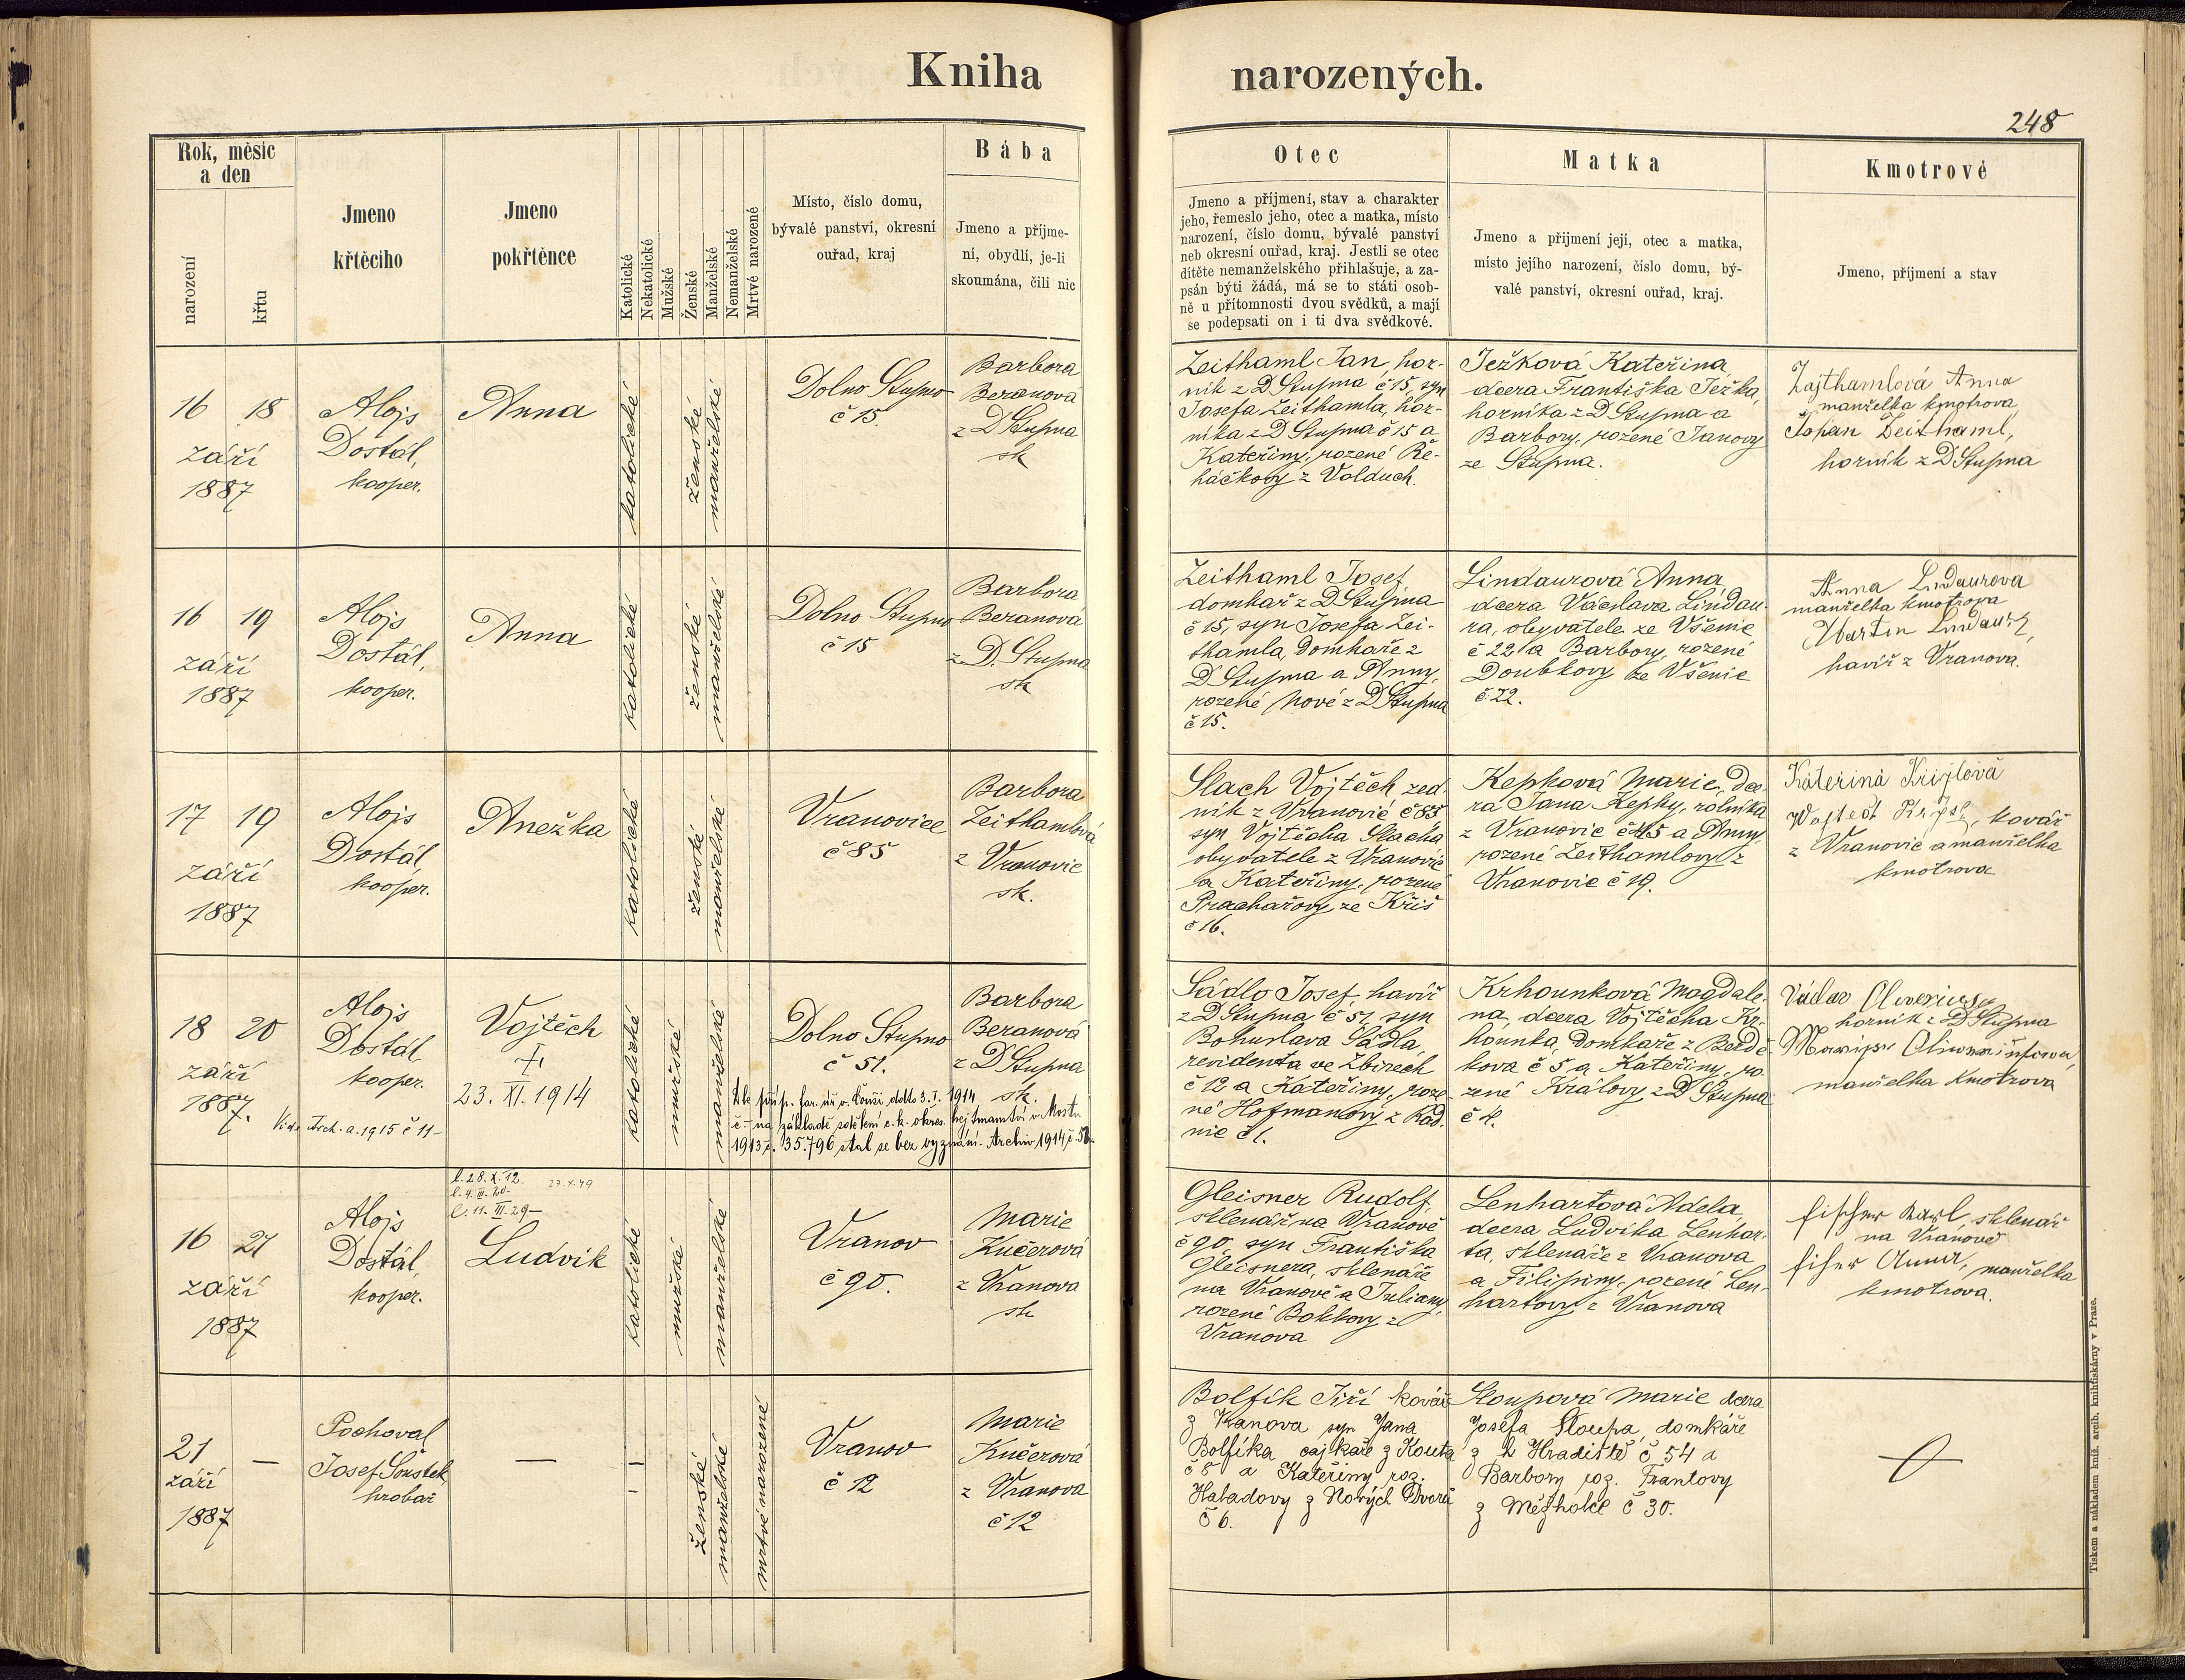 Kniha narozených.
248
Rok, měsíc
a den
narození
křtu
Jmeno
křtěcího
Jmeno
pokřtěnce
Katolické
Nekatolické
Mužské
Ženské
Manželské
Nemanželské
Mrtvé narozené
Místo, číslo domu,
bývalé panství, okresní
ouřad, kraj
Bába
Jmeno a příjme-
ní, obydlí, je-li
skoumána, čili nic
Otec
Jmeno a příjmení, stav a charakter
jeho, řemeslo jeho, otec a matka, místo
narození, číslo domu, bývalé panství
neb okresní ouřad, kraj. Jestli se otec
dítěte nemanželského přihlašuje, a za-
psán býti žádá, má se to státi osob-
ně u přítomnosti dvou svědků, a mají
se podepsati on i ti dva svědkové.
Matka
Jmeno a přijmení její, otec a matka,
místo jejího narození, číslo domu, bý-
valé panství, okresní ouřad, kraj.
Kmotrové
Jmeno, příjmení a stav
16 18
září
1887
Alojs
Dostál,
kooper.
Anna
katolické
ženské
manželské
Dolno Stupno
č 15.
Barbora
Beranová
z D Stupna
sk
Zeithaml Jan, hor-
ník z D Stupna č 15, syn
Josefa Zeithamla, hor-
níka z D Stupna č 15 a
Kateřiny, rozené Ře-
háčkovy z Volduch.
Ježková Kateřina,
dcera Františka Ježka,
horníka z D Stupna a
Barbory, rozené Janovy
ze Stupna.
Zajthamlová Anna
manželka kmotrova
Johan Zeithaml,
horník z D Stupna
16 19
září
1887
Alojs
Dostál,
kooper.
Anna
katolické
ženské
manželské
Dolno Stupno
č 15
Barbora
Beranová
z D. Stupna
sk
Zeithaml Josef,
domkař z D Stupna
č 15, syn Josefa Zei-
thamla, domkaře z
D Stupna a Anny,
rozené Nové z D Stupna
č 15.
Lindaurová Anna
dcera Václava Lindau-
ra, obyvatele ze Všenic
č 22 a Barbory, rozené
Doubkovy ze Všenic
č 22.
Anna Lindaurova
manželka kmotrova
Martin Lindaur,
havíř z Vranova.
17 19
září
1887
Alojs
Dostál,
kooper.
Anežka
katolické
ženské
manželské
Vranovice
č 85
Barbora
Zeithamlová
z Vranovic
sk.
Slach Vojtěch, zed-
ník z Vranovic č 85
syn Vojtěcha Slacha
obyvatele z Vranovic
a Kateřiny, rozené
Prachařovy ze Kříš
č 16.
Kepková Marie, dce-
ra Jana Kepky, rolníka
z Vranovic č 45 a Anny
rozené Zeithamlovy z
Vranovic č 19.
Kateřina Krýglová
kovář
z Vranovic a manželka
kmotrova
18 20
září
1887.
Vide Arch. a. 1915 č 11-
Alojs
Dostál
kooper.
Vojtěch
+
23. XI. 1914
katolické
mužské
manželské
Dolno Stupno
č 51.
Barbora
Beranová
z D Stupna
sk.
Dle příp. far. úř. v. ddto 3. I. 1914
č - na základě sdělení c. k. okres. hejtmanství v Mostu
1913 č. 35.796 stal se bez vyznání. Archiv 1914 č.
Sádlo Josef, havíř
z D Stupna č 51, syn
Bohuslava Sádla,
revidenta ve Zbirech
č 12 a Kateřiny, roze
né Hofmanovy z Rad-
nic č 1.
Krhounková Magdale-
na, dcera Vojtěcha Kr-
hounka, domkaře z Bezdě-
kova č 5 a Kateřiny, ro
zené Královy z D Stupna
č 4.
Václav Oliverius
horník z D Stupna
manželka kmotrova
16 21
září
1887
Alojs
Dostál,
kooper.
l. 28. X. 12. 27. X. 49
l. 4. III. 20-
l. 11. III. 29-
Ludvík
katolické
mužské
manželské
Vranov
č 90.
Marie
Kučerová
z Vranova
sk
Gleisner Rudolf,
sklenář na Vranově
č 90, syn Františka
Gleisnera, sklenáře
na Vranově a Juliany,
rozené Bokkovy z
Vranova
Lenhartová Adela,
dcera Ludvíka Lenhar-
ta, sklenáře z Vranova
a Filipiny, rozené Len-
hartovy z Vranova
Fischer Karl, sklenář
na Vranově
Fiher Anna, manželka
kmotrova.
21 —
září
1887
Pochoval
Josef Šoustek,
hrobař
—
—
-
ženské
manželské
mrtvě narozené
Vranov
č 12
Marie
Kučerová
z Vranova
č 12
Bolfík Jiří kovář
z Vranova syn Jana
Bolfíka cajkaře z Kouta
č 8 a Kateřiny roz.
Haladovy z Nových Dvorů
č 6.
Sloupová Marie dcera
Josefa Sloupa, domkáře
z Hradiště č 54 a
Barbory roz. Frantovy
z Mežholez č 30.
Tiskem a nákladem kníž. arcib. knihtiskárny v Praze.